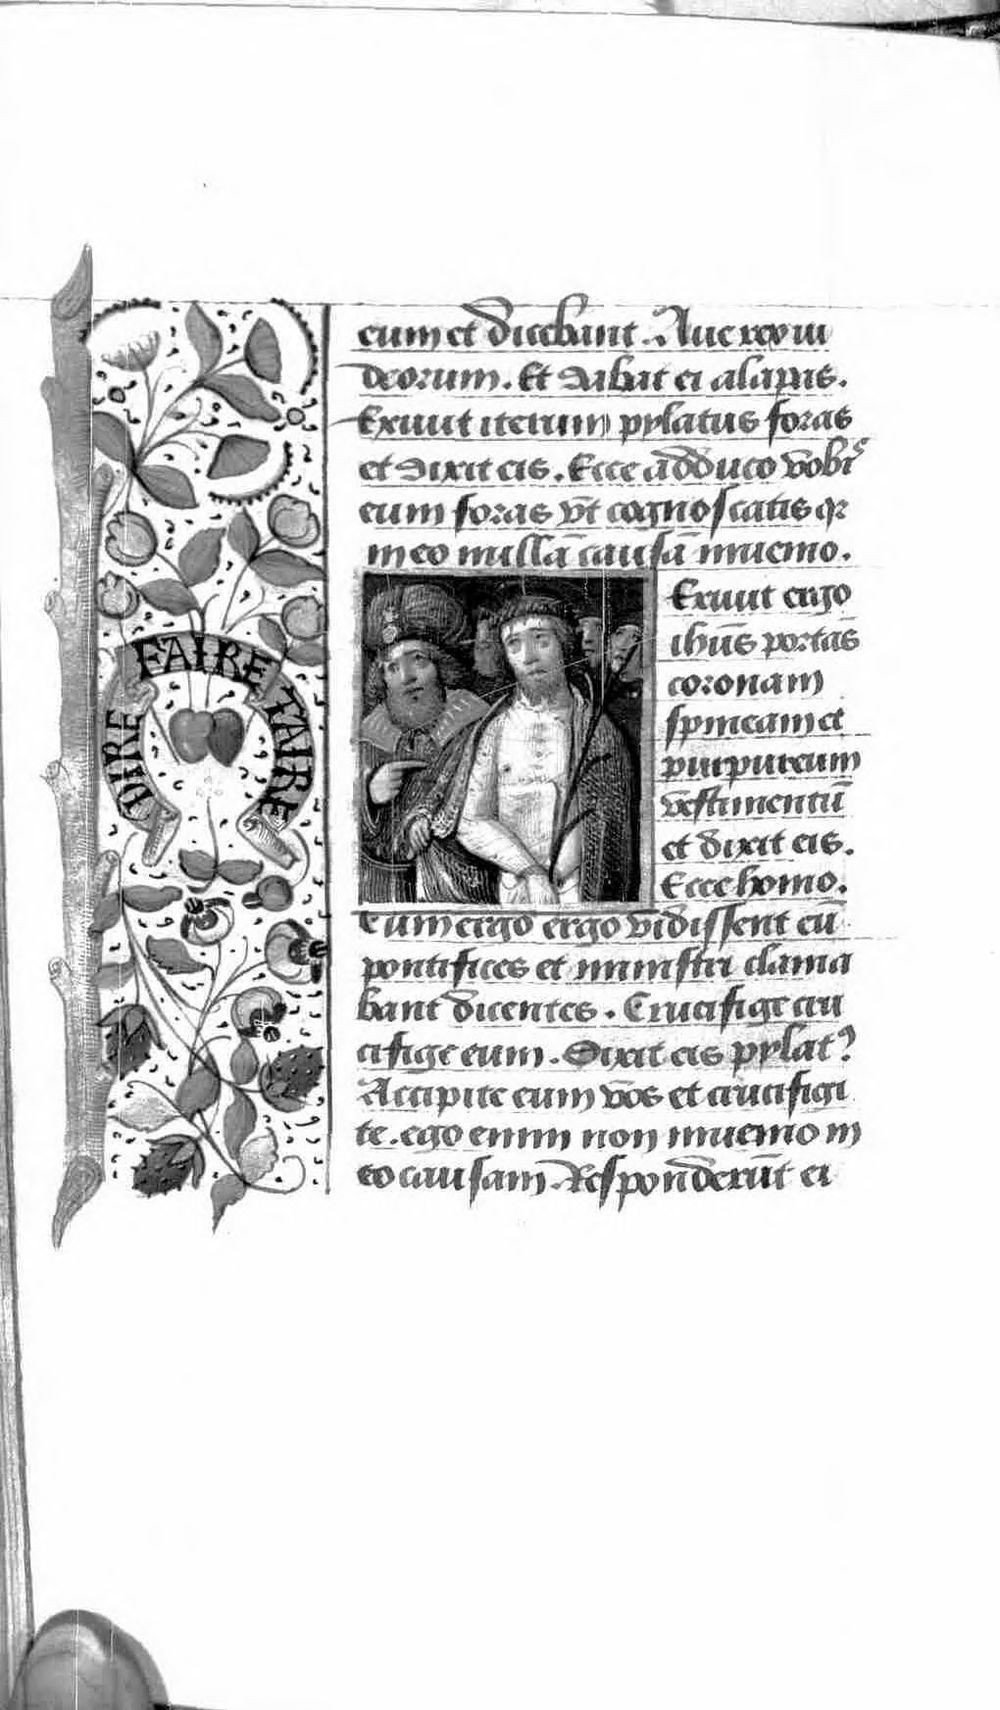 DIRE
FAIRE
TAIRE
eum et dicebant. Aue rex iu
deorum. Et dabat ei alapas.
Exiuit iterum pylatus foras
et dixit eis. Ecce adduco vobis
eum foras vt cognoscatis qr
in eo nullā causā inuenio.
Exiuit ergo
ihūs portās
coronam
spineam et
purpureum
vestimentū
et dixit eis.
Ecce homo.
Cum ergo ergo vidissent eū
pontifices et ministri clama
bant dicentes. Crucifige cru
cifige eum. Dixit eis pylatꝰ
Accipite eum vos et crucifigi
te. ego enim non inuenio in
eo causam. Responderūt ei